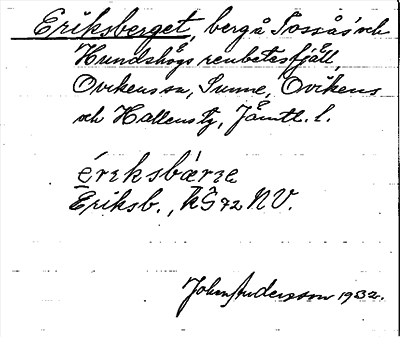 Eriksberget, berg å Sossås' och
Hundshögs renbetesfjäll,
Ovikens sn, Sunne, Ovikens
och Hallens tg, Jämtl. l.
ériksbærıe
Eriksb., kG 72 NV.
John Andersson 1932.